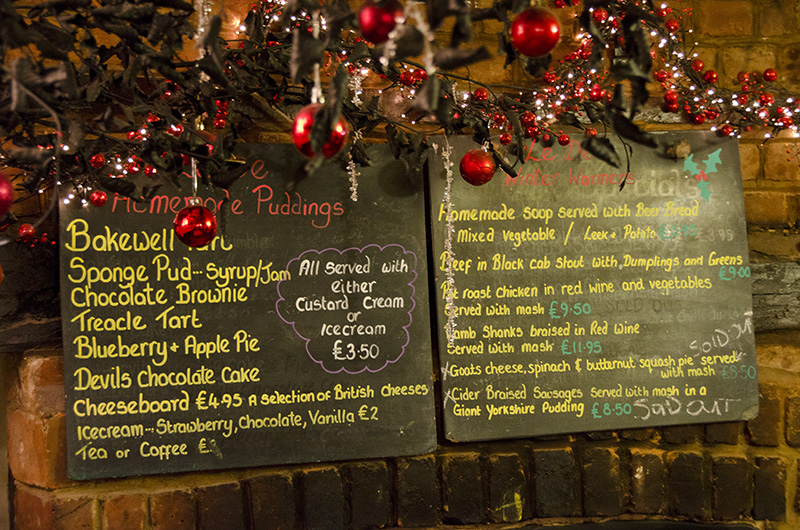 Homemade Puddings
Bakewell Tart
Sponge Pud... Syrup/Jam
Chocolate Brownie
Treacle Tart
Blueberry + Apple Pie
Devils Chocolate Cake
Cheeseboard £4.95 A selection of British Cheeses
Icecream... Strawberry, Chocolate, Vanilla £2
Tea or Coffee
All served with
either
Custard Cream
or
Icecream
£3.50
Winter Warmers
Homemade soup served with Beer Bread
Mixed Vegetable / Leek & Potato
Beef in Black cab stout with Dumplings and Greens
£9.00
roast chicken in red wine and vegetables
Served with mash £9.50
Lamb Shanks braised in Red wine
Served with mash £11.95
Goats cheese, spinach & butternut squash pie served
with mash £8.50
SOLD OUT
Cider Braised Sausages served with mash in a
Giant Yorkshire Pudding £8.50 SOLD OUT